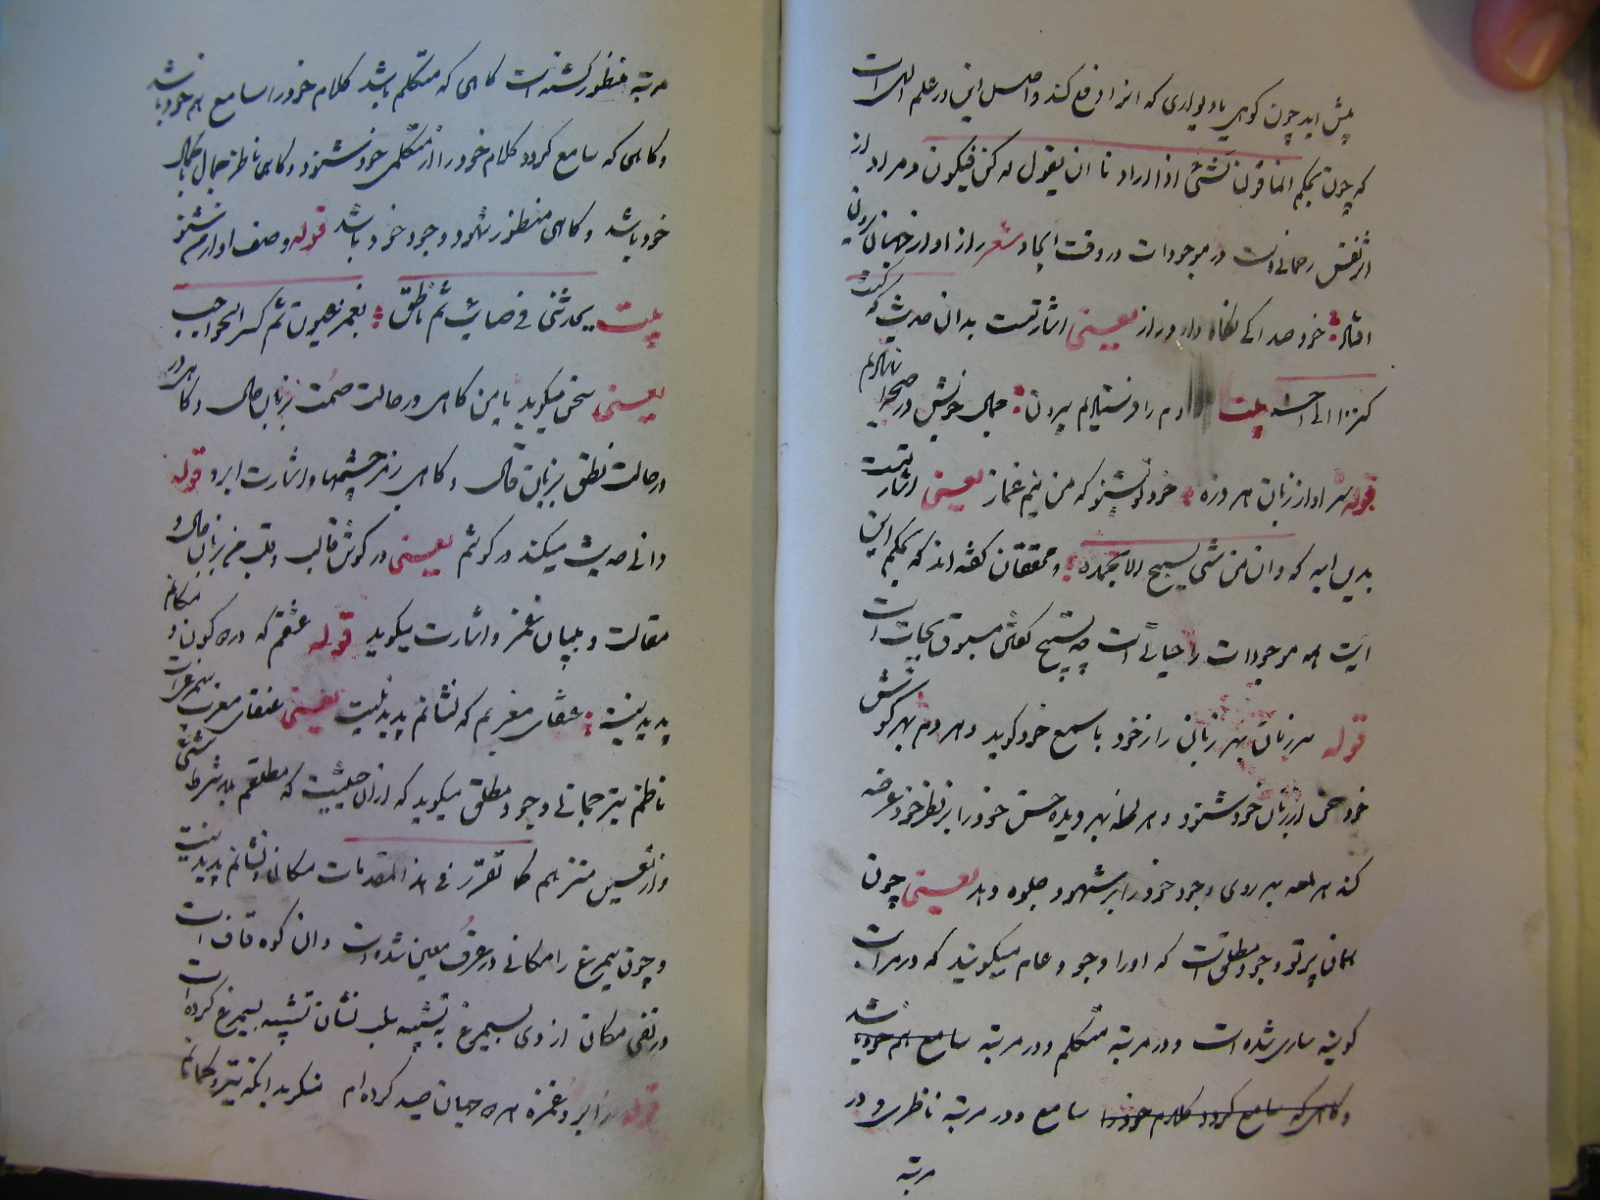 پیش اید چون کوهی یا دیواری که انرا رفع کند و اصل این در علم الهی است
که چون بحکم انما قولنا لشیء اذا اردناه ان نقول له کن فیکون و مراد از
از نفس رحمانی است در موجودات در وقت ایجاد شعر راز او از جهان برون
افتاد خود صدا کی نگاه دارد راز یعنی اشارتست بدان حدیث که کنت
کنزا الی اخره بیت دم را فرستادم برون جمال خویش در صحرا نهادم
قوله سر او از زبان هر ذره خود تو بشنو که من نیم غماز یعنی اشارتست
بدین ایه که وان من شیء الا یسبح بحمده و محققان گفته اند که بحکم این
آیت همه موجودات را حیاتی است چه تسبیح نطقی مسبوق بحیات است
قوله هر زمان بهر زبانی راز خود با سمع خود کوید و هر دم بهر کوش
خود سخن از زبان خود شنود و هر لحظه بهر دیده حسن خود را بر نظر خود عرضه
کند هر لمعه بهر روی وجود خود را بر شهود جلوه دهد یعنی چون
همان پرتو وجود مطلق است که اورا وجود عام میکویند که در مراتب
کونیه ساری شده است و در مرتبه متکلم و در مرتبه سامع هم خود باشد
و کاهی که سامع کردد کلام خود را سامع و در مرتبه ناظری و در
مرتبه
مرتبه منظور کشته است کاهی که متکلم باشد کلام خود را سامع هم خود باشد
و کاهی که سامع کردد کلام خود را از متکلمی خود شنود و کاهی ناظر جمال باکمال
خود باشد و کاهی منظور شهود وجود خود باشد قوله وصف او ازم بشنو
بیت یحدثنی فی صامت ثم ناطق و غمز عیون ثم کسر الحواجب
یعنی سخن میکوید با من کاهی در حالت صمت بزبان حال و کاهی در
در حالت نطق بزبان قال و کاهی رمز چشمها و اشارت ابرو قوله
دانی چه حدیث میکند در کوشم یعنی در کوش قالب و قلب من بزبان حال و
مقالت و بلسان غمز و اشارت میکوید قوله عشقم که در دو کون مکانم
پدید نیست عنقای مغربم که نشانم پدید نیست یعنی عنقای مغرب
ناظم بترجمانی وجود مطلق میکوید که از ان حیثیت که مطلقم بلا شرط شیء
و از تعین منزهم کما تقرر فی هذا المقدمات مکانی و نشانم پدید نیست
و چون سیمرغ را مکانی در عرف معین شده است و ان کوه قاف است
در نفی مکانی از وی بسیمرغ نه تشبیه بلب نشان تشبیه بسیمرغ کرده است
قوله ز ابرو و غمزه هر دو جهان صید کرده ام منکر بدانکه تیر و کمانم